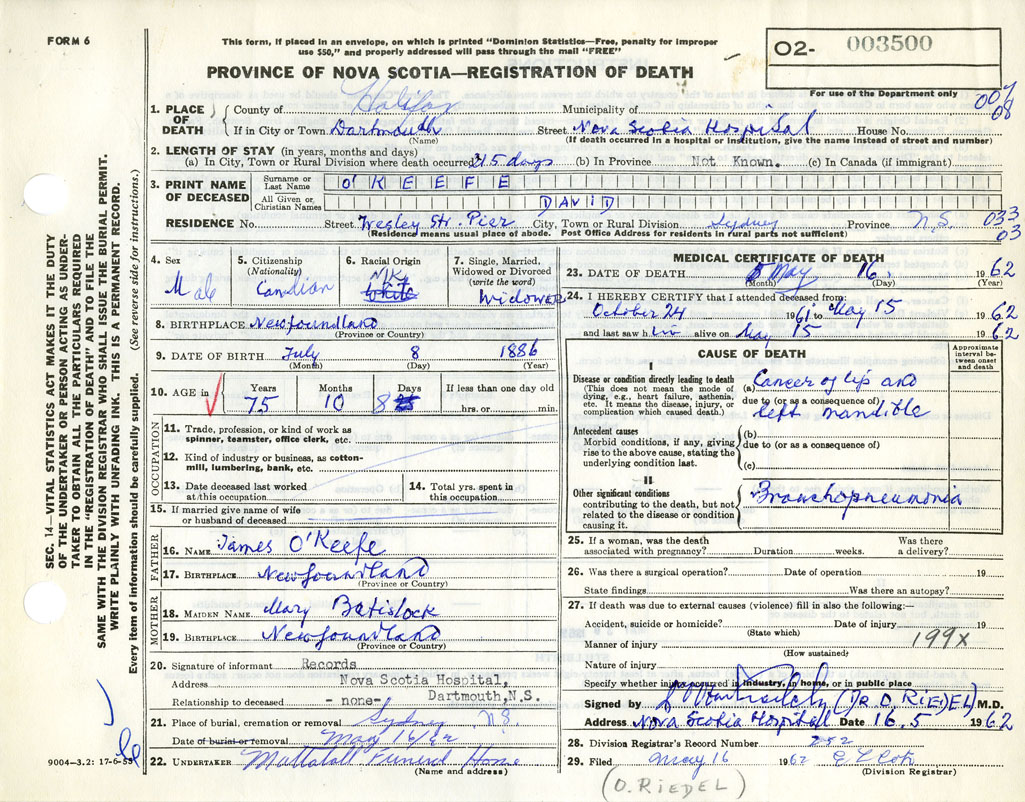 FORM 6
This form, if placed in an envelope, on which is printed "Dominion Statistics—Free, penalty for improper
use $50," and properly addressed will pass through the mail "FREE"
02- 003500
For use of the Department only
PROVINCE OF NOVA SCOTIA—REGISTRATION OF DEATH
007
08
1. PLACE OF DEATH
County of Halifax Municipality of
If in City or Town Dartmouth Street Nova Scotia Hospital House No.
(Name) (If death occurred in a hospital or institution, give the name instead of street and number)
2. LENGTH OF STAY (in years, months and days)
(a) In City, Town or Rural Division where death occurred 45 days (b) In Province Not Known. (c) In Canada (if immigrant)
3. PRINT NAME OF DECEASED
Surname or Last Name O'KEEFE
All Given or Christian Names DAVID
RESIDENCE No. Street Wesley Str. Pier City, Town or Rural Division Sydney Province N.S. 033
03
(Residence means usual place of abode. Post Office Address for residents in rural parts not sufficient)
4. Sex
Male
5. Citizenship
(Nationality)
Canadian
6. Racial Origin
N.K.
White
7. Single, Married,
Widowed or Divorced
(write the word)
Widower
8. BIRTHPLACE Newfoundland
(Province or Country)
9. DATE OF BIRTH July 8 1886
(Month) (Day) (Year)
10. AGE in
Years Months Days If less than one day old
75 10 8 hrs. or min.
OCCUPATION
11. Trade, profession, or kind of work as
spinner, teamster, office clerk, etc.
12. Kind of industry or business, as cotton-
mill, lumbering, bank, etc.
13. Date deceased last worked
at this occupation
14. Total yrs. spent in
this occupation
15. If married give name of wife
or husband of deceased
FATHER
16. NAME James O'Keefe
17. BIRTHPLACE Newfoundland
(Province or Country)
MOTHER
18. MAIDEN NAME Mary Batislock
19. BIRTHPLACE Newfoundland
(Province or Country)
20. Signature of informant Records
Address Nova Scotia Hospital,
Dartmouth, N.S.
Relationship to deceased - none-
21. Place of burial, cremation or removal Sydney NS
Date of burial or removal May 16/62
22. UNDERTAKER Mattatall Funeral Home
(Name and address)
MEDICAL CERTIFICATE OF DEATH
23. DATE OF DEATH May 16, 1962
(Month) (Day) (Year)
24. I HEREBY CERTIFY that I attended deceased from:
October 24 1961 to May 15 1962
and last saw him alive on May 15 1962
CAUSE OF DEATH
Approximate
interval be-
tween onset
and death
I
Disease or condition directly leading to death
(This does not mean the mode of
dying, e.g., heart failure, asthenia,
etc. It means the disease, injury, or
complication which caused death.)
(a) Cancer of lip and
due to (or as a consequence of)
left mandible
Antecedent causes
Morbid conditions, if any, giving
rise to the above cause, stating the
underlying condition last.
(b)
due to (or as a consequence of)
(c)
II
Other significant conditions
contributing to the death, but not
related to the disease or condition
causing it.
Bronchopneumonia
25. If a woman, was the death
associated with pregnancy? Duration weeks. Was there
a delivery?
26. Was there a surgical operation? Date of operation 19
State findings Was there an autopsy?
27. If death was due to external causes (violence) fill in also the following:—
Accident, suicide or homicide? Date of injury 19
(State which)
Manner of injury 199X
(How sustained)
Nature of injury
Specify whether injury occurred in industry, in home, or in public place
Signed by (Dr O. RIEDEL) M.D.
Address Nova Scotia Hospital Date 16.5 1962
28. Division Registrar's Record Number 252
29. Filed May 16 1962
(Division Registrar)
(O. RIEDEL)
SEC. 14—VITAL STATISTICS ACT MAKES IT THE DUTY
OF THE UNDERTAKER OR PERSON ACTING AS UNDER-
TAKER TO OBTAIN ALL THE PARTICULARS REQUIRED
IN THE "REGISTRATION OF DEATH" AND TO FILE THE
SAME WITH THE DIVISION REGISTRAR WHO SHALL ISSUE THE BURIAL PERMIT.
WRITE PLAINLY WITH UNFADING INK. THIS IS A PERMANENT RECORD.
Every item of information should be carefully supplied. (See reverse side for instructions.)
9004—3.2: 17-6-55